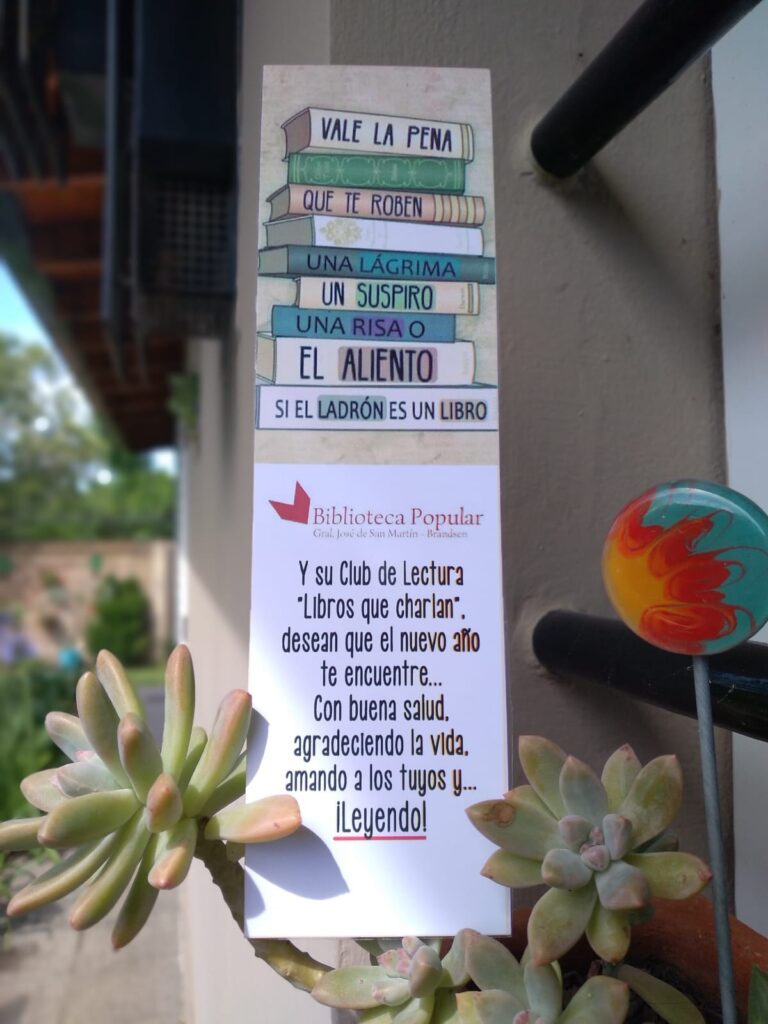 VALE LA PENA
QUE TE ROBEN
UNA LÁGRIMA
UN SUSPIRO
UNA RISA O
EL ALIENTO
SI EL LADRÓN ES UN LIBRO
Biblioteca Popular
Gral. José de San Martín - Brandsen
Y su Club de Lectura
"Libros que charlan",
desean que el nuevo año
te encuentre...
Con buena salud,
agradeciendo la vida,
amando a los tuyos y...
¡Leyendo!